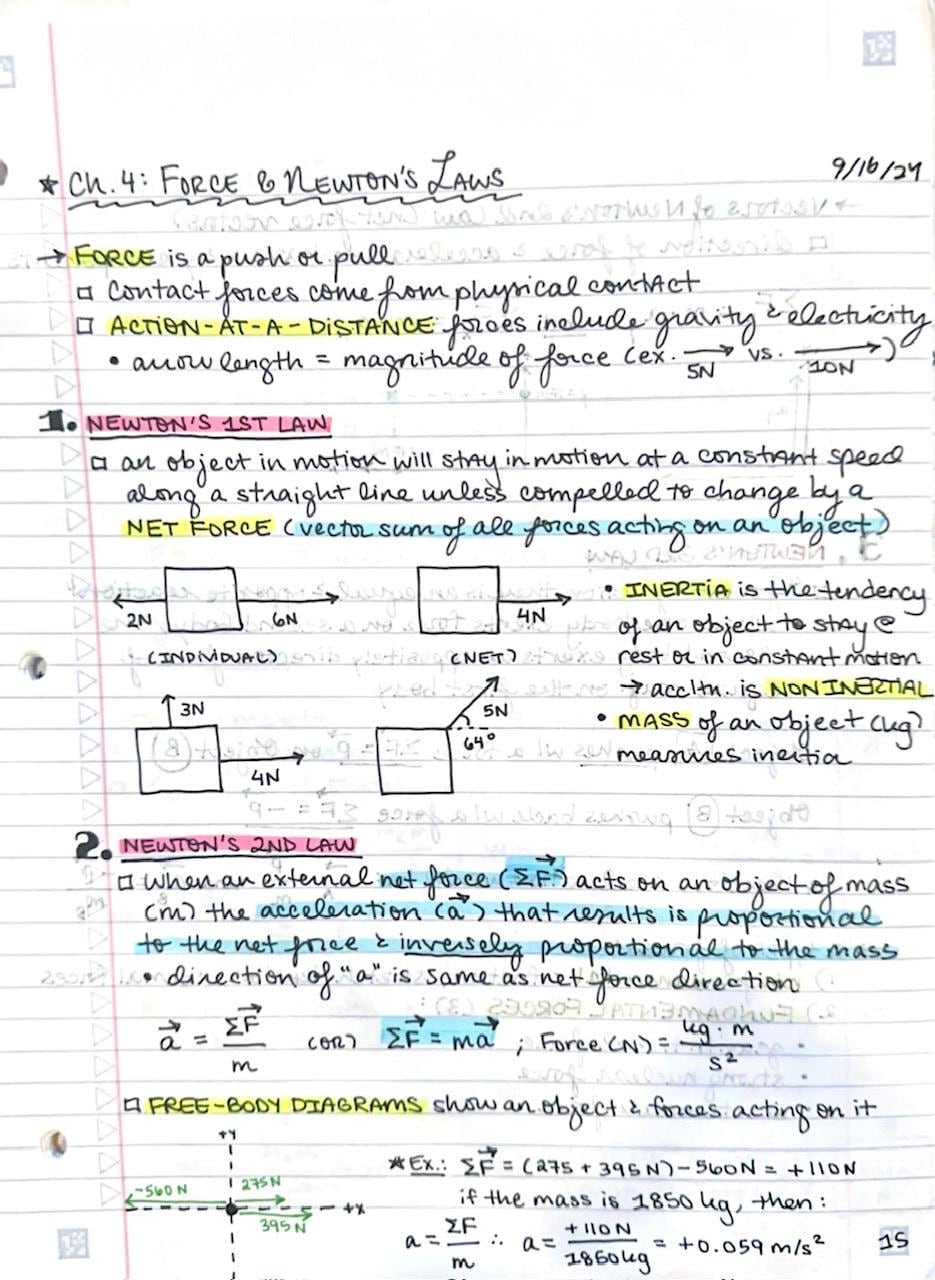 9/16/24
* Ch. 4: FORCE & NEWTON'S LAWS
→ FORCE is a push or pull
□ Contact forces come from physical contact
□ ACTION-AT-A-DISTANCE forces include gravity & electricity
• arrow length = magnitude of force (ex. → 5N vs. → 10N)
1. NEWTON'S 1ST LAW
□ an object in motion will stay in motion at a constant speed
along a straight line unless compelled to change by a
NET FORCE (vector sum of all forces acting on an object)
2N 6N
(INDIVIDUAL)
4N
(NET)
3N
4N
5N
64°
• INERTIA is the tendency
of an object to stay @
rest or in constant motion
→ accltn. is NONINERTIAL
• MASS of an object (kg)
measures inertia
2. NEWTON'S 2ND LAW
□ when an external net force (ΣF⃗) acts on an object of mass
(m) the acceleration (a⃗) that results is proportional
to the net force & inversely proportional to the mass
• direction of "a" is same as net force direction
a⃗ = ΣF⃗/m (or) ΣF⃗ = ma⃗ ; Force (N) = kg · m/s²
□ FREE-BODY DIAGRAMS show an object & forces acting on it
+Y
-560N 275N
+X
395N
* Ex.: ΣF⃗ = (275 + 395N) - 560N = +110N
if the mass is 1850 kg, then:
a = ΣF/m ∴ a = +110N/1850kg = +0.059 m/s²
15